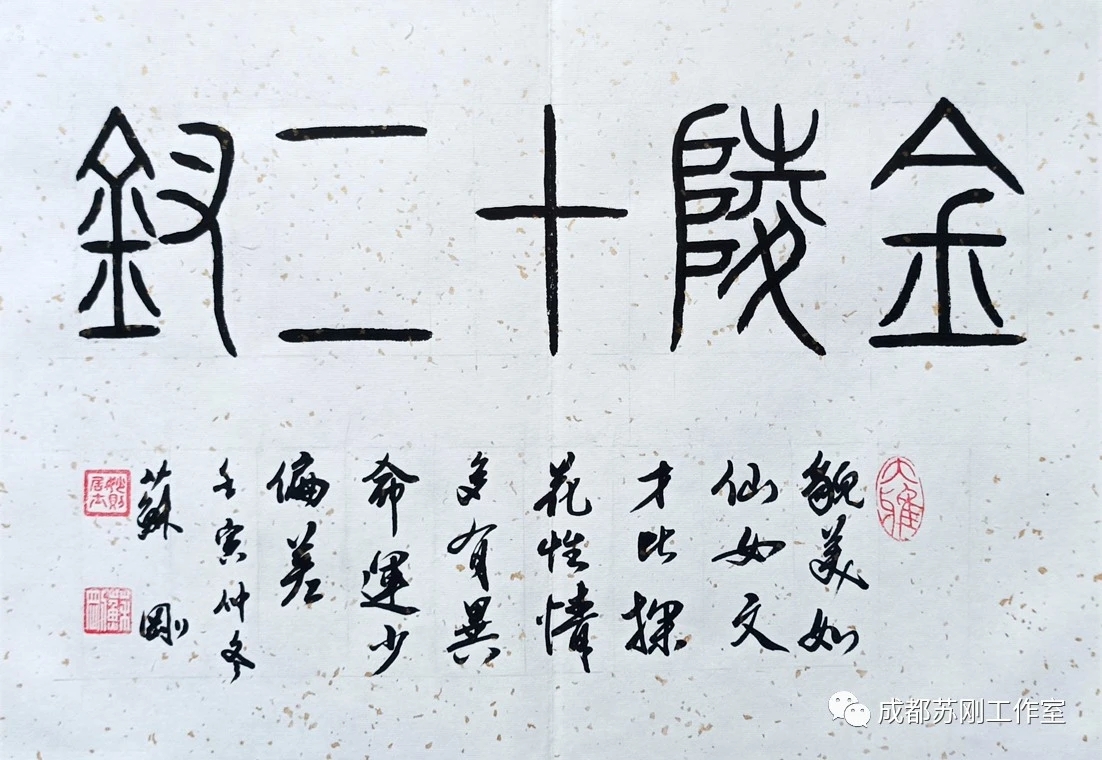 金陵十二釵
貌美如
仙女文
才比探
花性情
多有異
命運少
偏差
壬寅仲冬
蘇剛
大雅
成都苏刚工作室